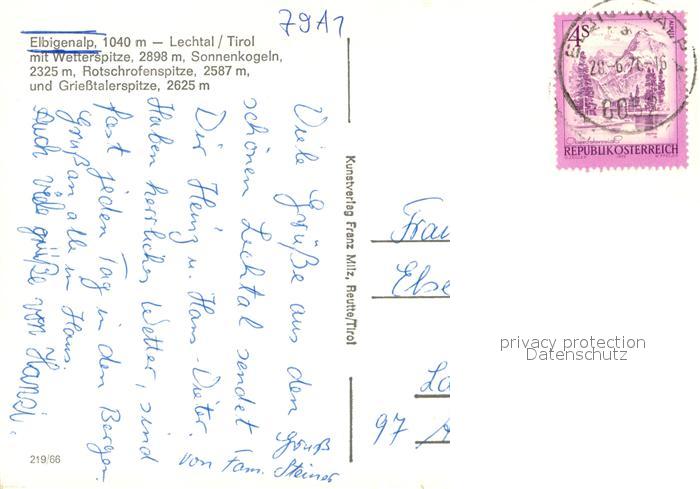 79A1
Elbigenalp, 1040 m — Lechtal / Tirol
mit Wetterspitze, 2898 m, Sonnenkogeln,
2325 m, Rotschrofenspitze, 2587 m,
und Grießtalerspitze, 2625 m
Viele Grüße aus den
schönen Lechtal sendet
Dir Heinz u. Hans-Dieter.
Haben herrliches Wetter, sind
fast jeden Tag in den Bergen.
Gruß an alle im Haus.
Auch viele grüße von Hansi.
Gruß
von Fam. Steiner
219/66
Kunstverlag Franz Milz, Reutte/Tirol
4S
REPUBLIK ÖSTERREICH
Frau
Else
La
97
privacy protection
Datenschutz